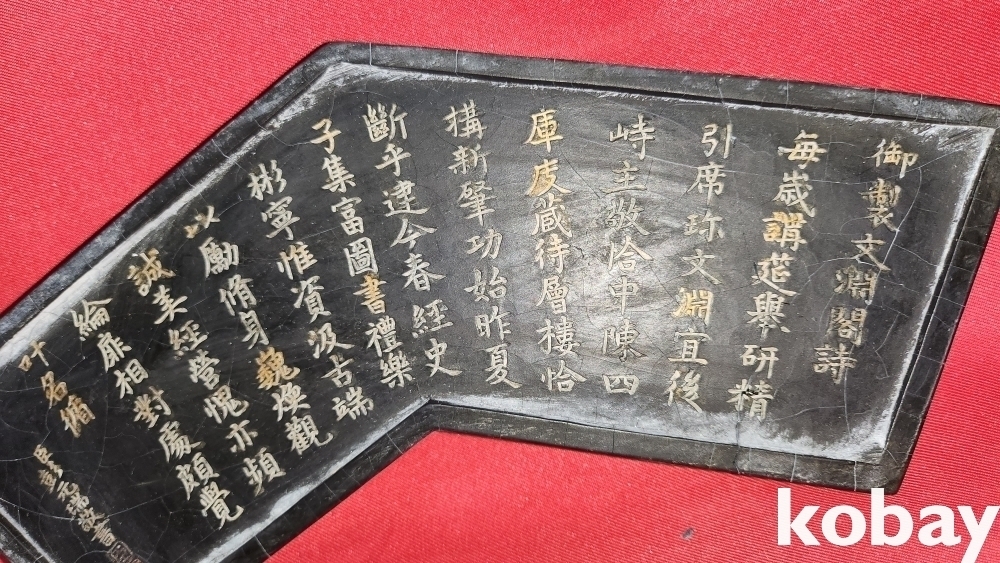 御製文淵閣詩
每歲講莚舉研精
引席珎文淵宜後
峙主敬恰中陳四
庫庋藏待層樓恰
搆新肇功始昨夏
斷乎建今春經史
子集富圖書禮樂
彬寧惟資汲古端
以勵脩身巍煥觀
誠美經營愧亦頻
綸扉相對處頗覺
叶名循
臣彭元瑞敬書
kobay